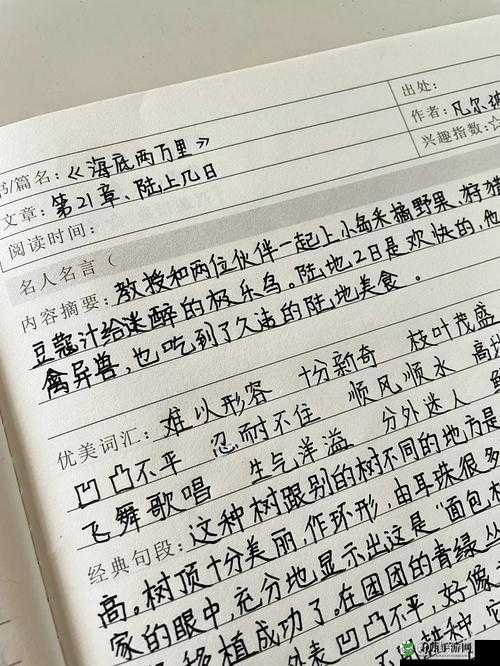 出处：
书/篇名：《海底两万里》
作者：凡尔
文章：第21章、陆上几日
兴趣指数：☆
阅读时间：
名人名言（
内容摘要：教授和两位伙伴一起上小岛来摘野果、狩猎
豆蔻汁给迷醉的极乐鸟。陆地2日是欢快的，他
禽异兽，也吃到了久违的陆地美食。
优美词汇：难以形容 十分新奇 枝叶茂盛
凹凸不平 忍耐不住 顺风顺水
飞舞歌唱 生气洋溢 分外迷人
经典句段：这种树跟别的树不同的地方是
高。树顶十分美丽，作环形，由耳珠很多
家的眼中，充分地显示出这是“面包
移植成功了。在团团的青绿
表凹凸不平，好像